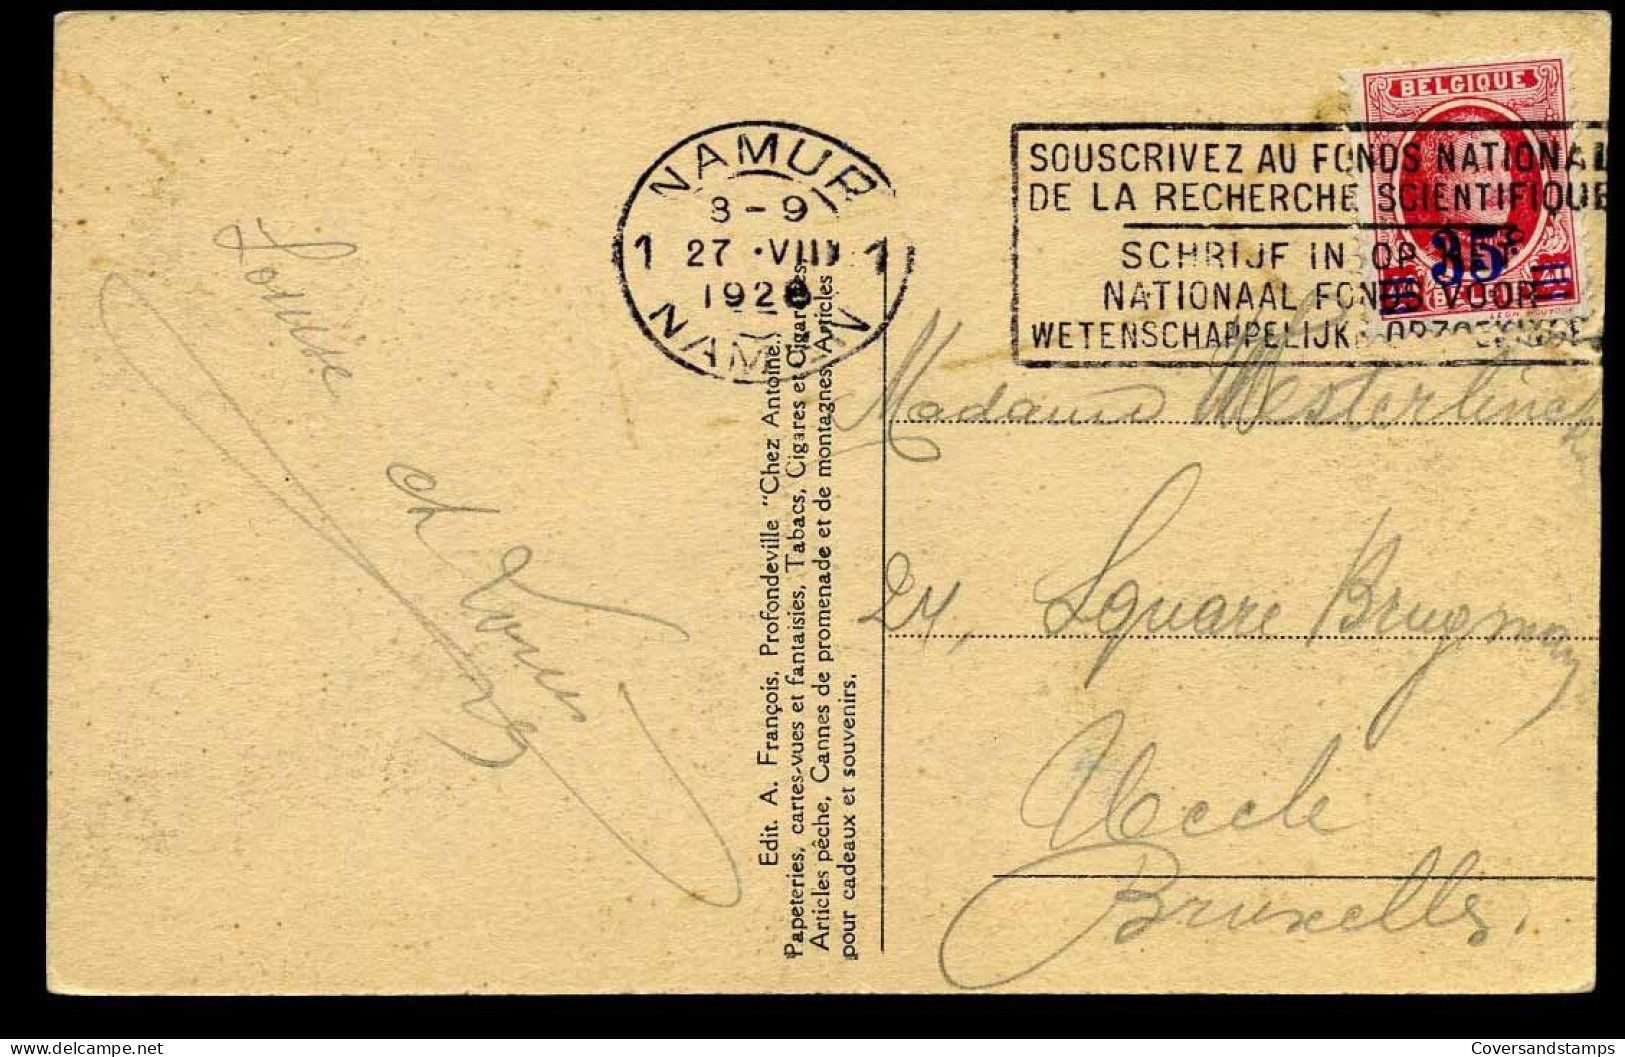 BELGIQUE
NAMUR
8-9
1 27 .VIII 1
192
NAMEN
SOUSCRIVEZ AU FONDS NATIONAL
DE LA RECHERCHE SCIENTIFIQUE
SCHRIJF IN OP HET
NATIONAAL FONDS VOOR
WETENSCHAPPELIJK
35c
Louise
et Louis
Edit. A. François, Profondeville "Chez Antoine."
Papeteries, cartes-vues et fantaisies, Tabacs, Cigares et Cigarettes.
Articles pêche, Cannes de promenade et de montagnes, Articles
pour cadeaux et souvenirs.
Madame Westerlinck
24, Square Brugman
Uccle
Bruxelles.
Delcampe.net
Coversandstamps